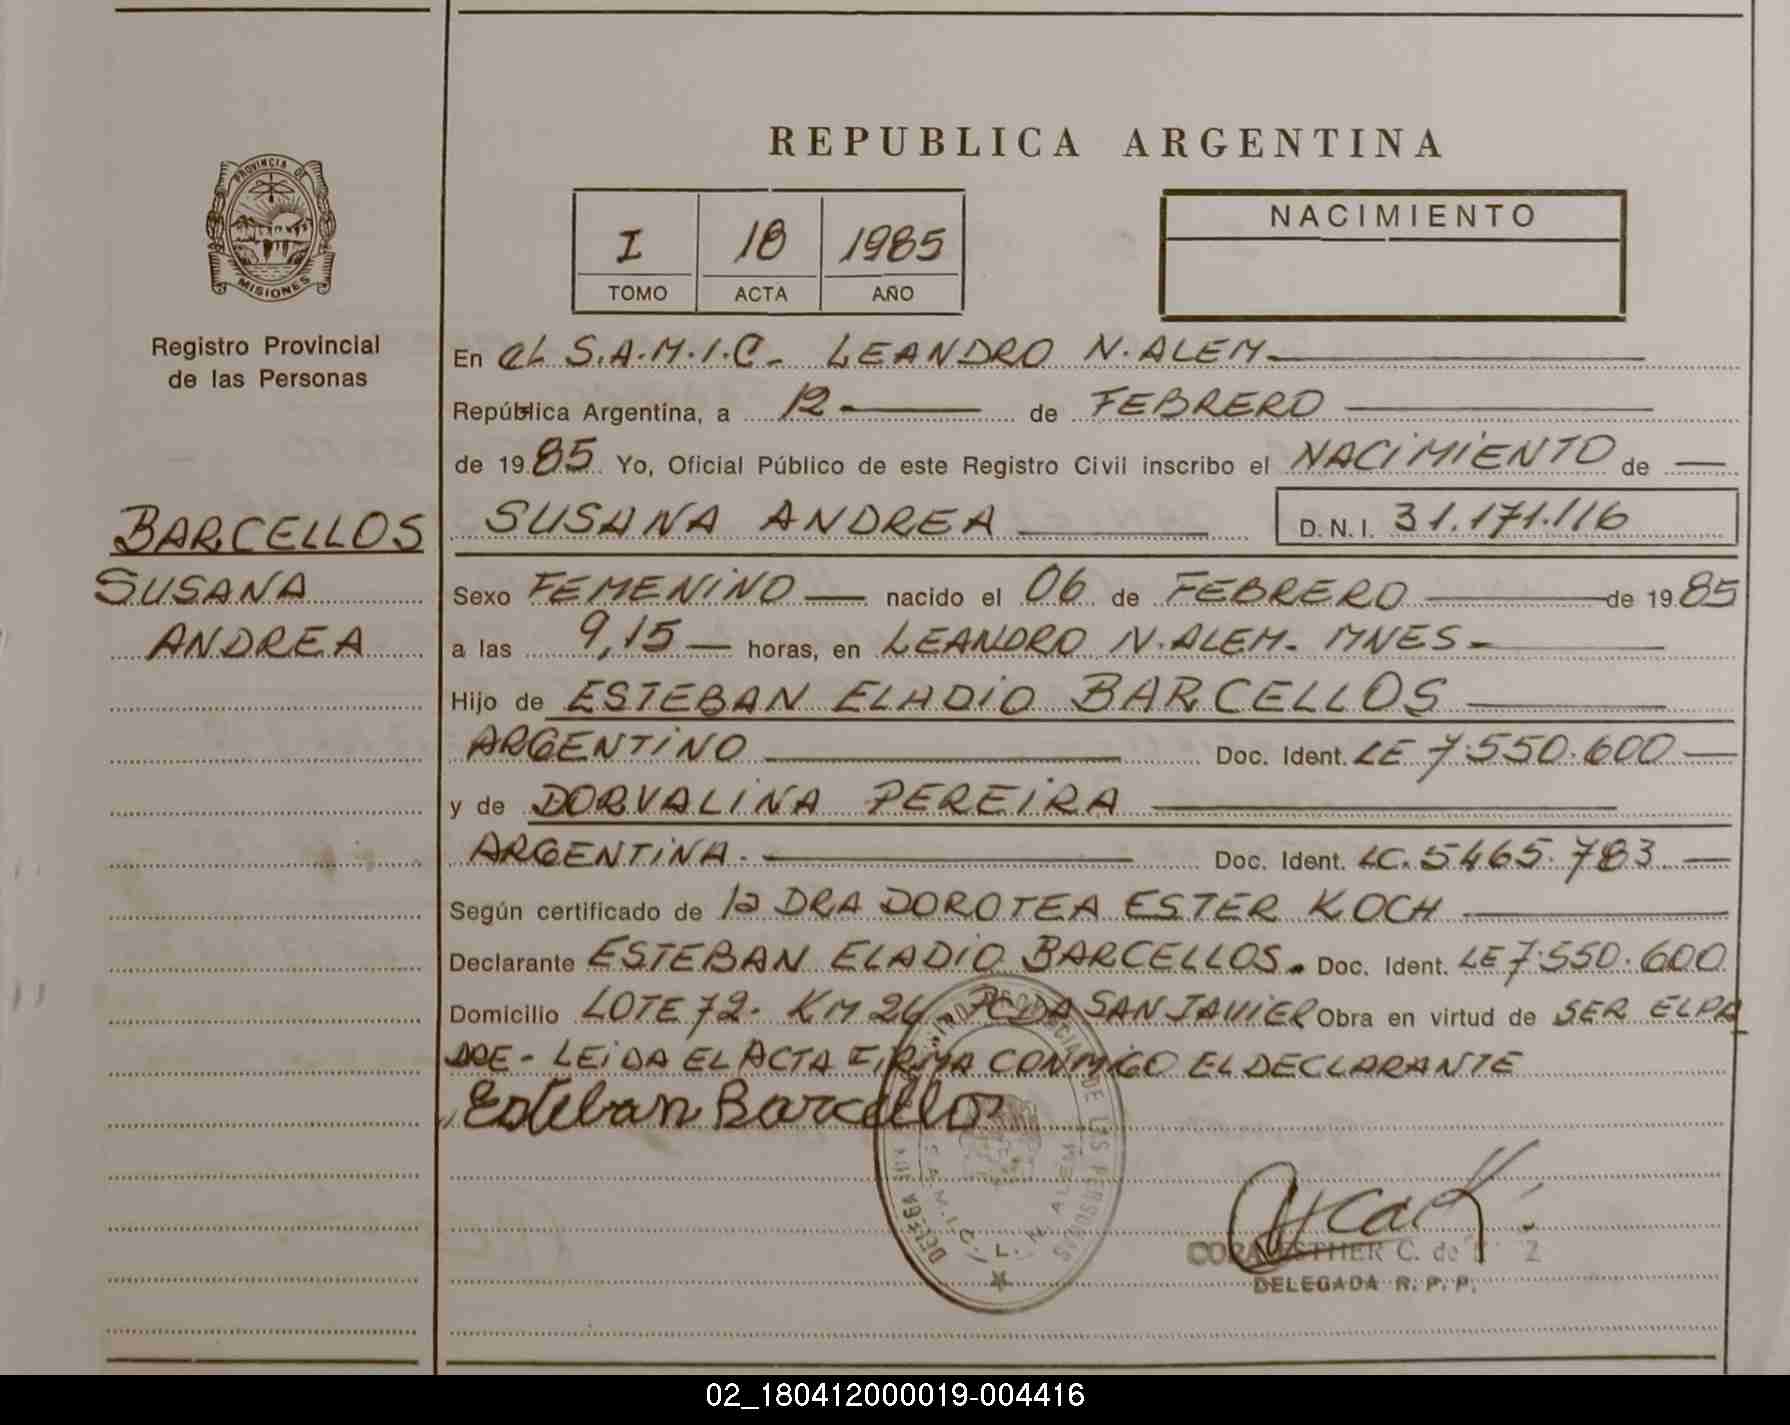 REPUBLICA ARGENTINA
PROVINCIA DE
MISIONES
Registro Provincial
de las Personas
I 18 1985
TOMO ACTA AÑO
NACIMIENTO
En el S.A.M.I.C. LEANDRO N. ALEM
República Argentina, a 12 de FEBRERO
de 1985 Yo, Oficial Público de este Registro Civil inscribo el NACIMIENTO de
SUSANA ANDREA D.N.I. 31.171.116
BARCELLOS
SUSANA
ANDREA
Sexo FEMENINO nacido el 06 de FEBRERO de 1985
a las 9,15 horas, en LEANDRO N. ALEM. MNES
Hijo de ESTEBAN ELADIO BARCELLOS
ARGENTINO Doc. Ident. LE 7.550.600
y de DORVALINA PEREIRA
ARGENTINA. Doc. Ident. LC. 5465.783
Según certificado de la DRA DOROTEA ESTER KOCH
Declarante ESTEBAN ELADIO BARCELLOS. Doc. Ident. LE 7.550.600
Domicilio LOTE 72. KM 26 PCDA SAN JAVIER Obra en virtud de SER EL PA
DRE - LEIDA EL ACTA FIRMA CONMIGO EL DECLARANTE
Esteban Barcellos
S.A.M.I.C. L. N. ALEM
CORA ESTHER C. de
DELEGADA R. P. P.
02_180412000019-004416